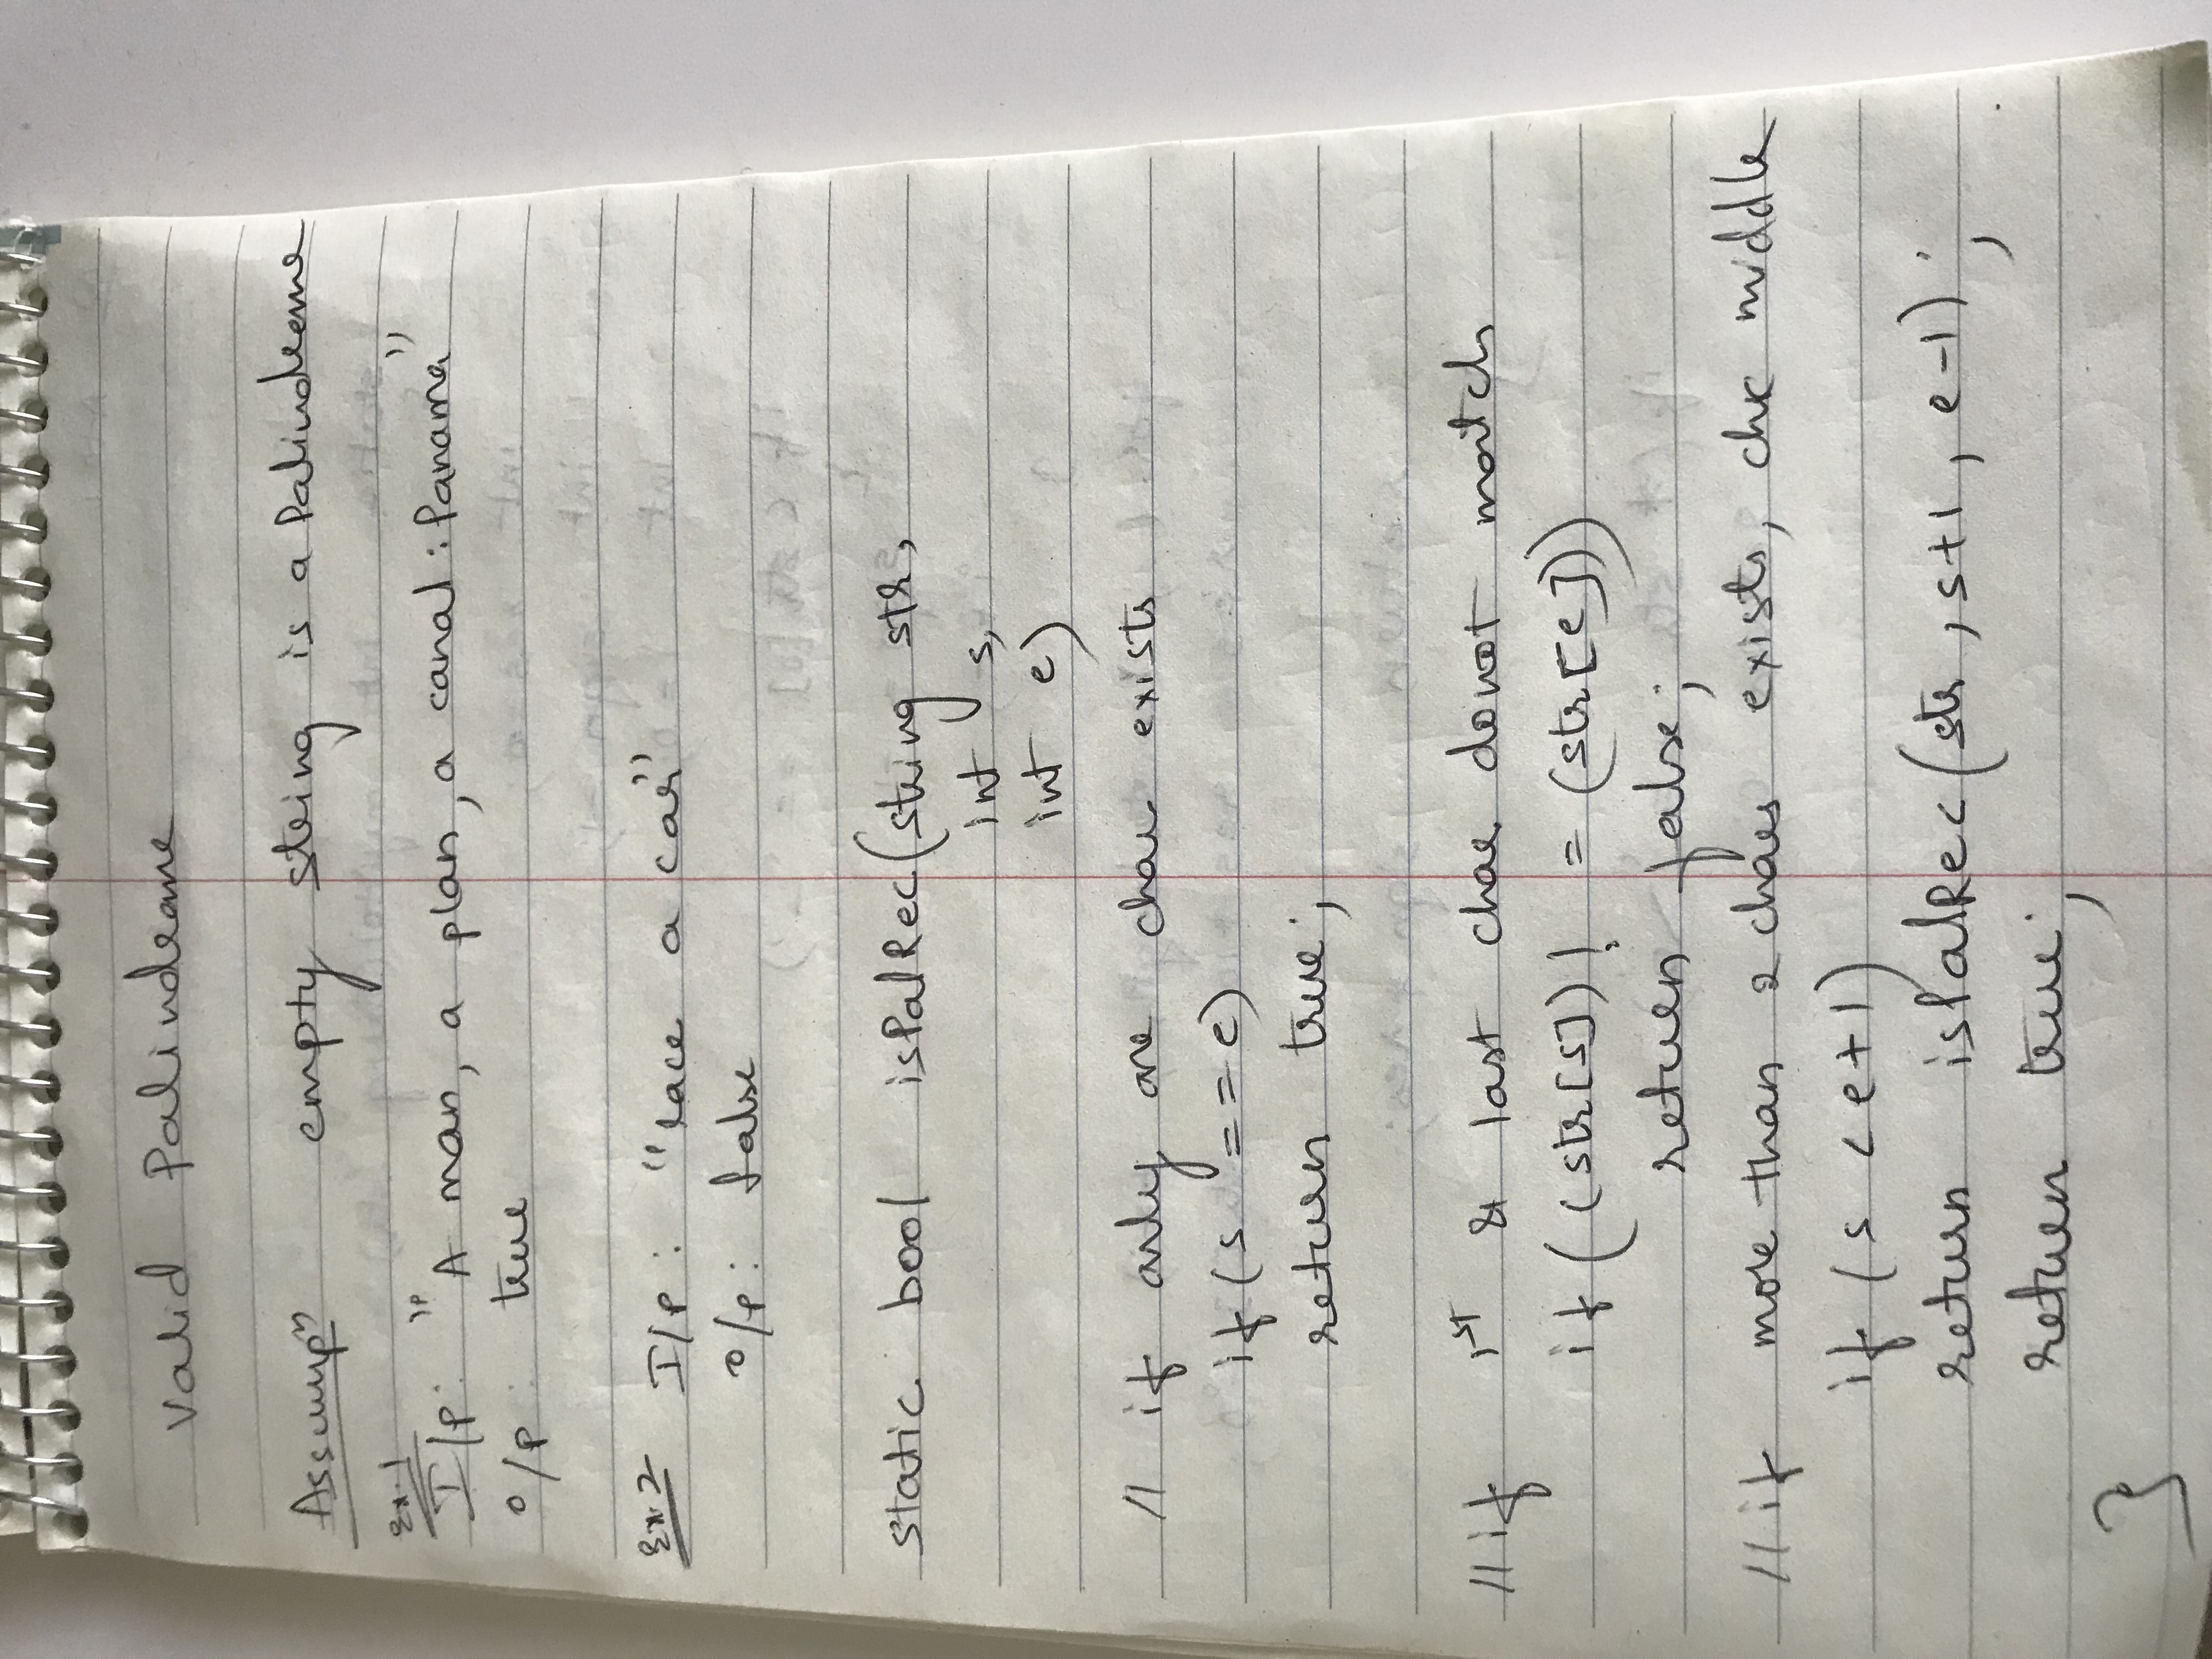 Valid Palindrome
Assumpn empty string is a Palindrome
Ex.1
I/p: "A man, a plan, a canal: Panama"
o/p: true
Ex.2 I/p: "race a car"
o/p: false
static bool isPalRec(string str,
int s,
int e)
// if only one char exists
if (s == e)
return true;
// if 1st & last char donot match
if ((str[s]) != (str[e]))
return false;
// if more than 2 chars exists, chk middle
if (s < e+1)
return isPalRec(str, s+1, e-1);
return true;
}